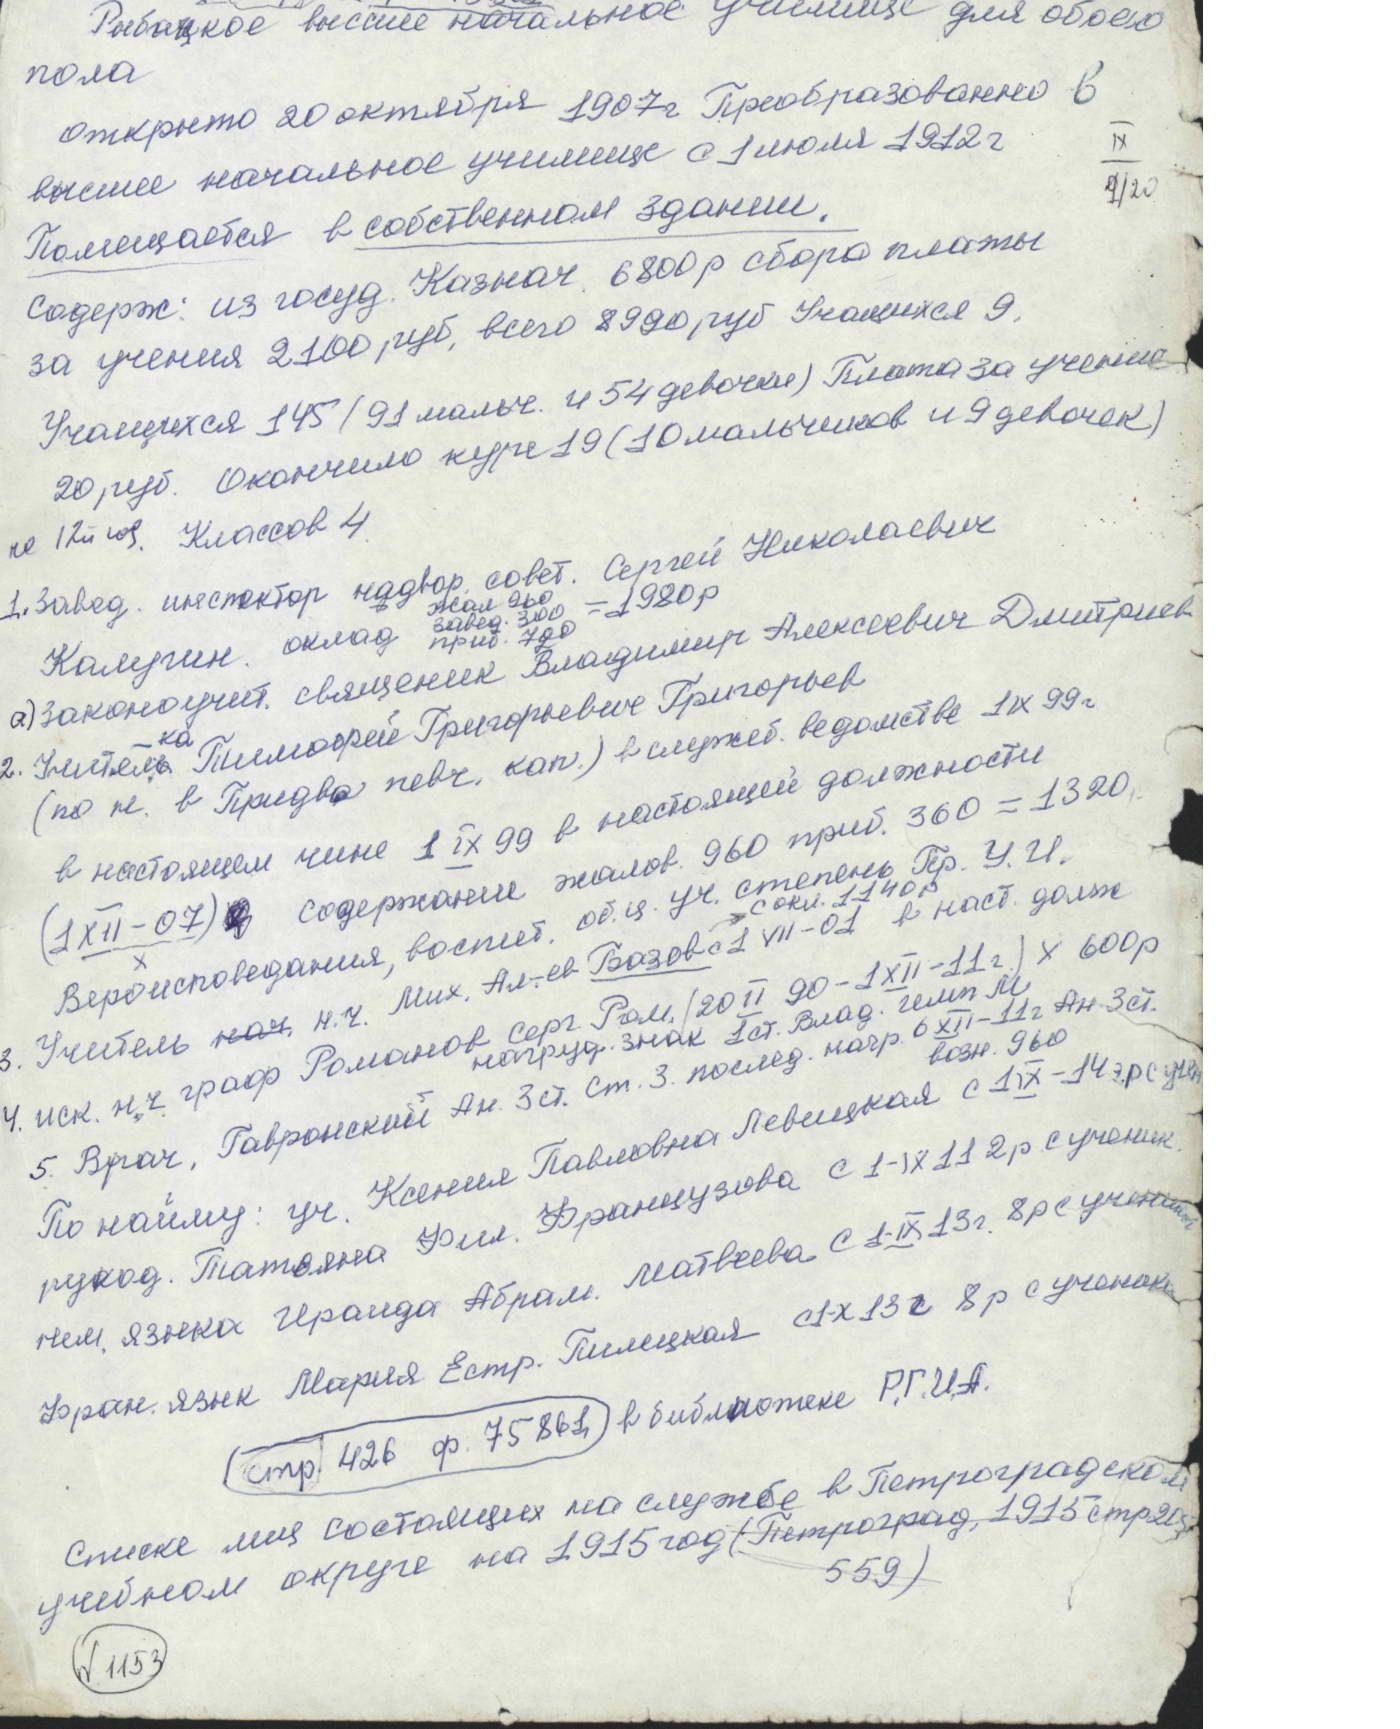 Рыбацкое высшее начальное училище для обоего
пола
открыто 20 октября 1907г Преобразованно в
высшее начальное училище с 1 июля 1912г
IX
9/20
Помещается в собственном здании.
Содерж: из госуд. Казнач. 6800р сбора платы
за учения 2100 руб, всего 8990 руб Учащихся 9.
Учащихся 145 (91 мальч. и 54 девочки) Плата за учение
20 руб. Окончило курс 19 (10 мальчиков и 9 девочек)
Классов 4.
1. Завед. инспектор надвор. совет. Сергей Николаевич
Калугин. оклад жал 960 завед. 300 приб. 720 = 1980р
а) Законоучит. священик Владимир Алексеевич Дмитриев
2. Учитель ка Тимофей Григорьевич Григорьев
(по н. в Придво певч. кап.) в служеб. ведомстве 1 IX 99г
в настоящем чине 1 IX 99 в настоящей должности
(1 XII - 07) содержание жалов. 960 приб. 360 = 1320
Вероисповедания, воспит. об.щ. уч. степень Пр. У. И.
с окл. 1140р
3. Учитель нач. н.ч. Мих. Ал-ев Базов с 1 VII - 01 в наст. долж
4. иск. н.ч. граф Романов Серг. Ром. (20 II 90 - 1 XII - 11г.) X 600р
нагруд. знак 1ст. Влад. гимн М
5. Врач, Гавронский Ан. 3ст. Ст. 3. послед. нагр. 6 XII - 11г Ан. 3ст.
возн. 960
По найму: уч. Ксения Павловна Левицкая с 1 IX - 14 р с учен
рукод. Татьяна Фил. Французова с 1 - IX 11 2р с ученик.
нем. языка Ираида Абрам. Матвеева с 1 - IX 13г. 8р с ученика
Фран. язык Мария Естр. Пилецкая с 1 - X 13г 8р с ученика
стр. 426 ф. 75861 в библиотеке Р.Г.И.А.
Списке лиц состоящих на службе в Петроградском
учебном округе на 1915 год (Петроград, 1915 стр
559)
N 1153